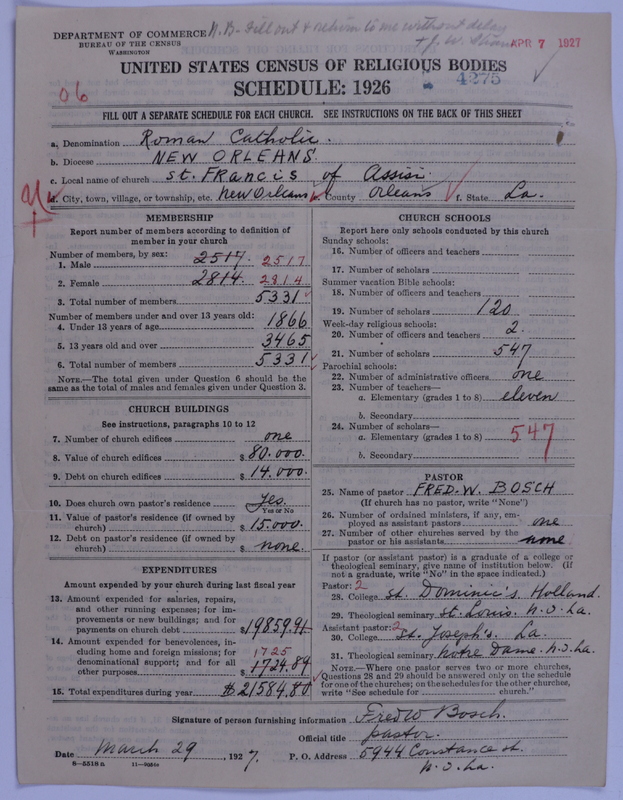 N.B. Fill out & return to me without delay
DEPARTMENT OF COMMERCE
BUREAU OF THE CENSUS
WASHINGTON
J. W.
APR 7 1927
UNITED STATES CENSUS OF RELIGIOUS BODIES
4275
SCHEDULE: 1926
06
FILL OUT A SEPARATE SCHEDULE FOR EACH CHURCH. SEE INSTRUCTIONS ON THE BACK OF THIS SHEET
a. Denomination Roman Catholic.
b. Diocese NEW ORLEANS.
c. Local name of church St. FRANCIS of Assisi.
d. City, town, village, or township, etc. New Orleans e. County Orleans f. State La.
MEMBERSHIP
Report number of members according to definition of
member in your church
Number of members, by sex:
1. Male 2517. 2517
2. Female 2814. 2814
3. Total number of members 5331
Number of members under and over 13 years old:
4. Under 13 years of age 1866
5. 13 years old and over 3465
6. Total number of members 5331
NOTE.—The total given under Question 6 should be the
same as the total of males and females given under Question 3.
CHURCH BUILDINGS
See instructions, paragraphs 10 to 12
7. Number of church edifices one
8. Value of church edifices $80.000.
9. Debt on church edifices $14.000.
10. Does church own pastor's residence Yes.
Yes or No
11. Value of pastor's residence (if owned by
church) $15.000.
12. Debt on pastor's residence (if owned by
church) $ none.
EXPENDITURES
Amount expended by your church during last fiscal year
13. Amount expended for salaries, repairs,
and other running expenses; for im-
provements or new buildings; and for
payments on church debt $19859.91
14. Amount expended for benevolences, in-
cluding home and foreign missions; for 1725
denominational support; and for all
other purposes $1724.89
15. Total expenditures during year $21584.80
CHURCH SCHOOLS
Report here only schools conducted by this church
Sunday schools:
16. Number of officers and teachers
17. Number of scholars
Summer vacation Bible schools:
18. Number of officers and teachers
19. Number of scholars 120
Week-day religious schools:
20. Number of officers and teachers 2.
21. Number of scholars 547
Parochial schools:
22. Number of administrative officers one
23. Number of teachers—
a. Elementary (grades 1 to 8) eleven
b. Secondary
24. Number of scholars—
a. Elementary (grades 1 to 8) 547
b. Secondary
PASTOR
25. Name of pastor FRED. W. BOSCH
(If church has no pastor, write "None")
26. Number of ordained ministers, if any, em-
ployed as assistant pastors one
27. Number of other churches served by the
pastor or his assistants none
If pastor (or assistant pastor) is a graduate of a college or
theological seminary, give name of institution below. (If
not a graduate, write "No" in the space indicated.)
Pastor: 2
28. College St. Dominic's Holland.
29. Theological seminary St. Louis. N.O. La.
Assistant pastor: 2
30. College St. Joseph's. La.
31. Theological seminary Notre Dame. N.O. La.
NOTE.—Where one pastor serves two or more churches,
Questions 28 and 29 should be answered only on the schedule
for one of the churches; on the schedules for the other churches,
write "See schedule for church."
Signature of person furnishing information Fred W Bosch.
Official title pastor.
Date March 29, 1927. P. O. Address 5944 Constance st.
8—5518 a 11—9054a N.O. La.